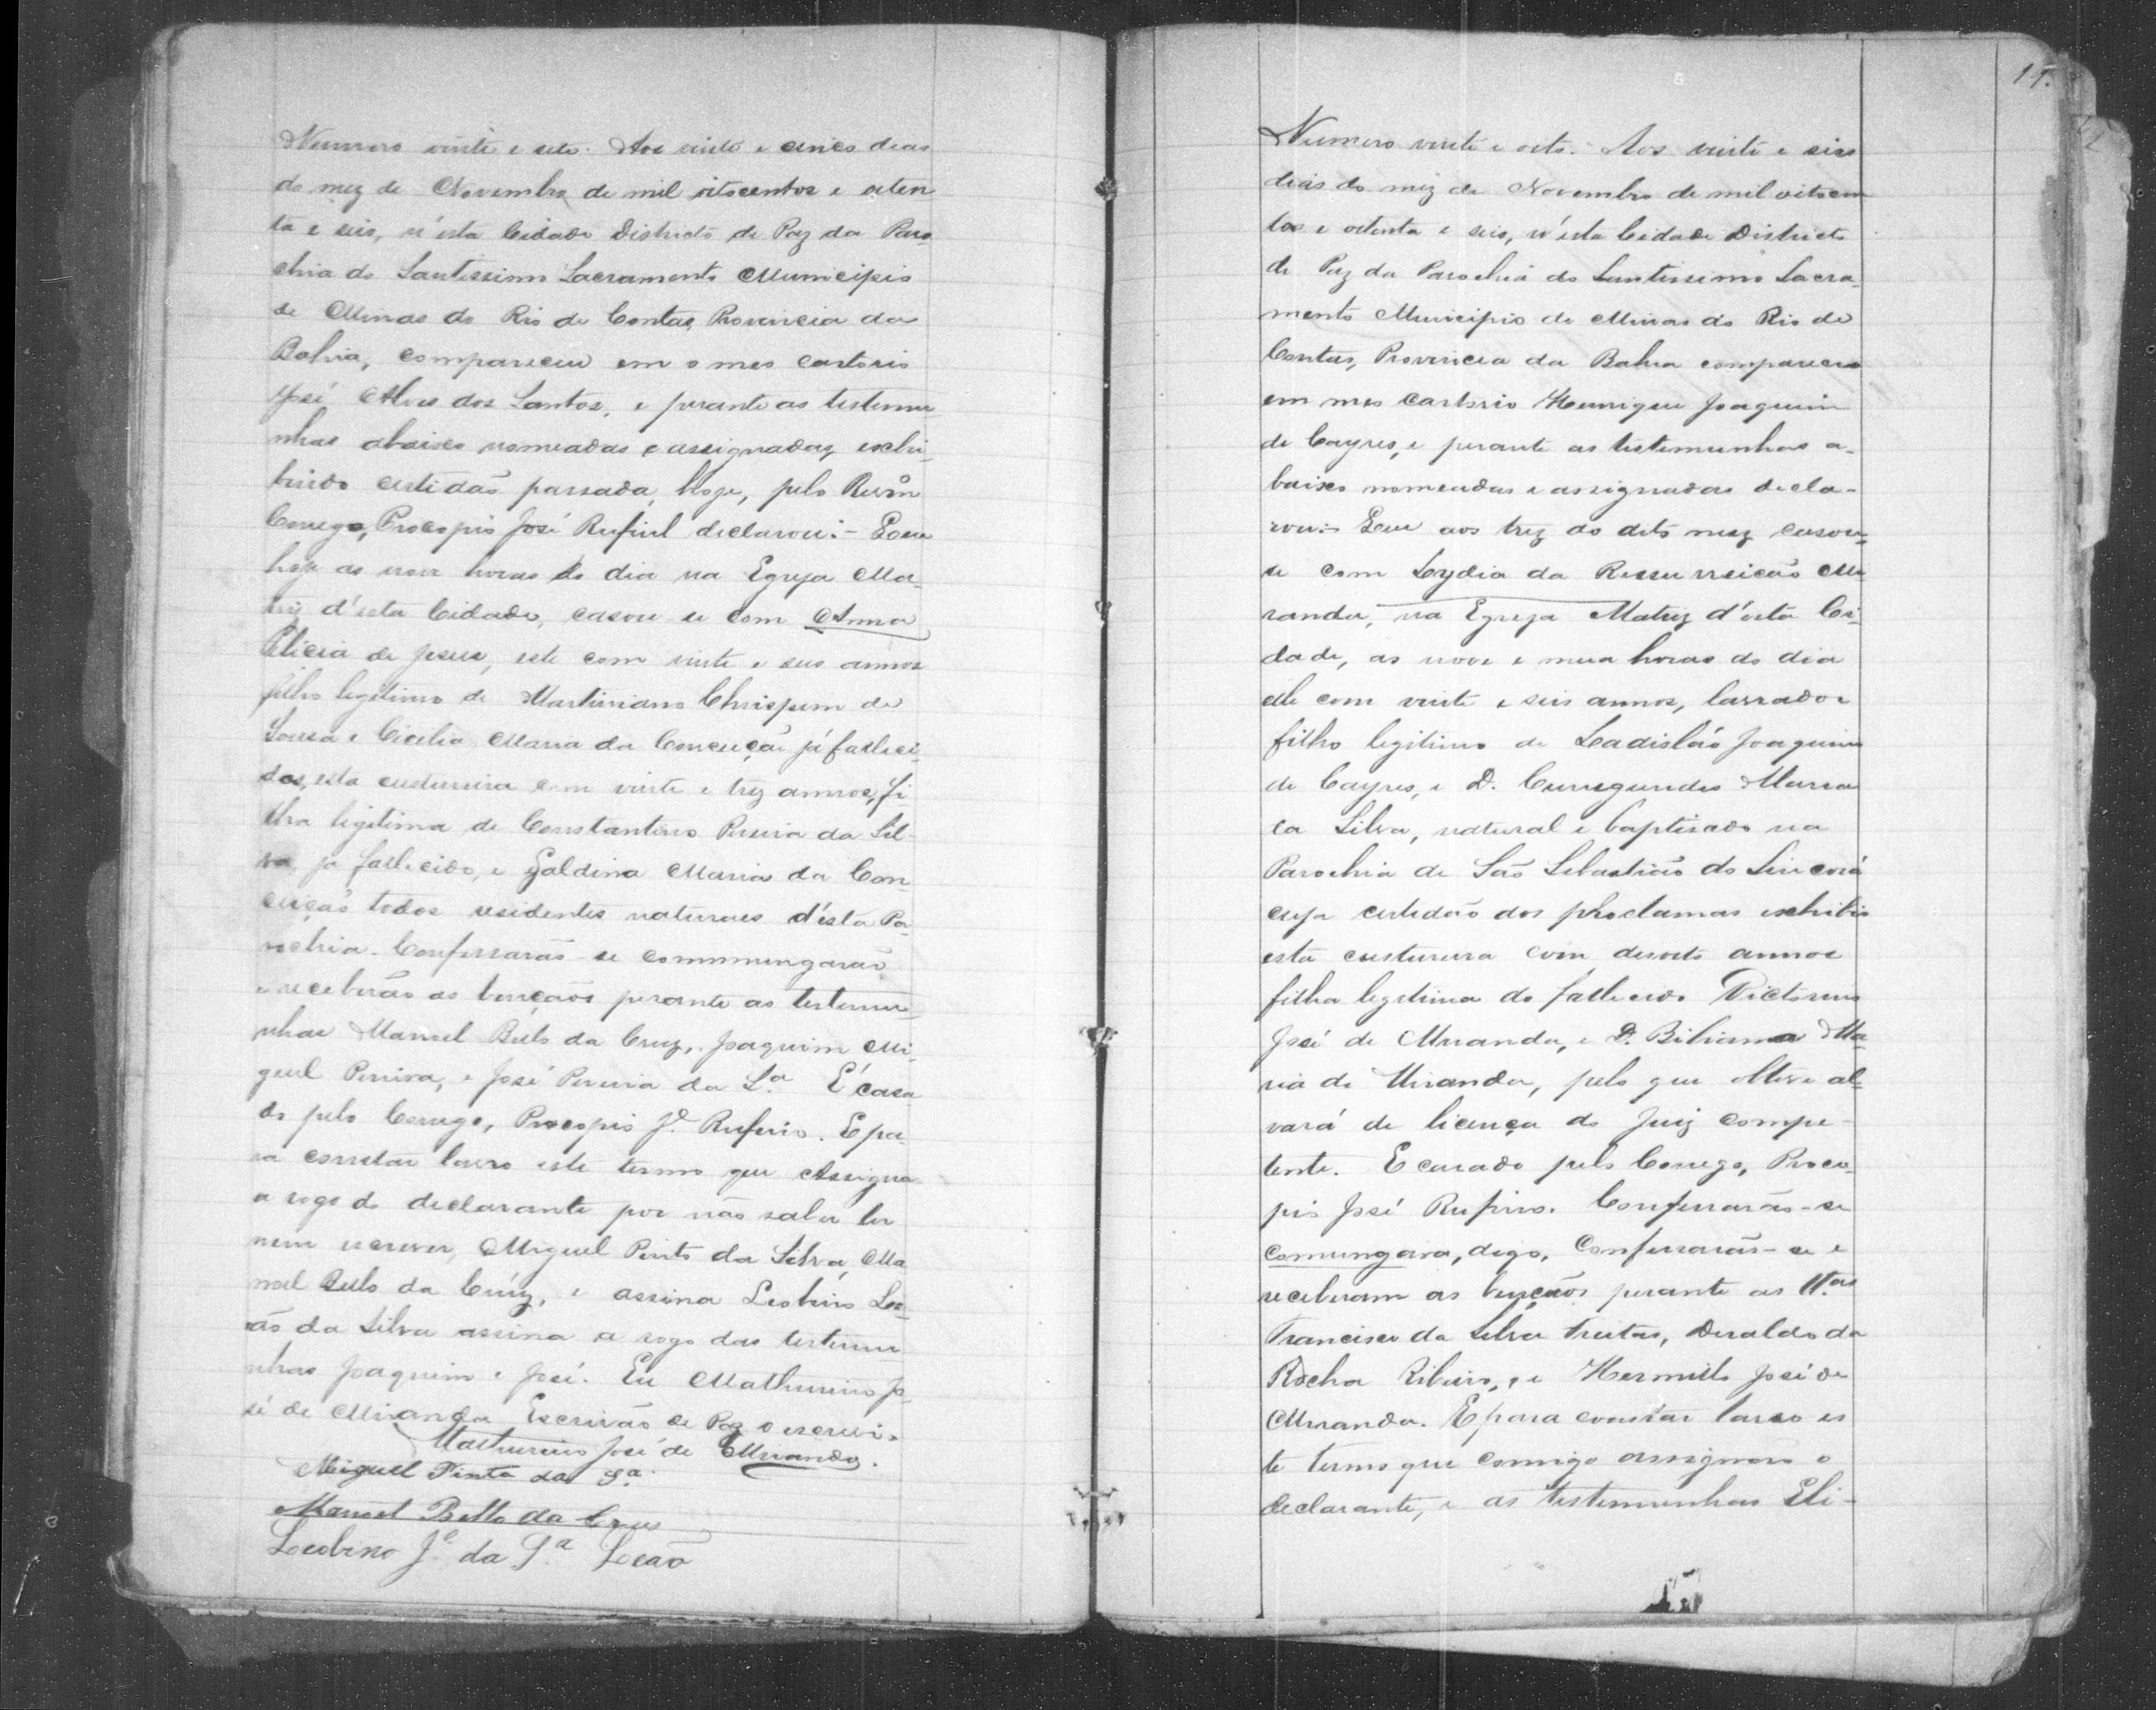 Numero vinte e sete. Aos vinte e cinco dias
do mez de Novembro de mil oitocentos e oiten
ta e seis, n'esta Cidade Districto de Paz da Paro
chia do Santissimo Sacramento Municipio
de Minas do Rio de Contas, Provincia da
Bahia, compareceu em o meo cartorio
José Alves dos Santos, e perante as testemu
nhas abaixo nomeadas e assignadas, exhi-
bindo certidão passada, hoje, pelo Revm.º
Conego, Procopio José Rufin declarou:- Que
hoje as nove horas do dia na Egreja Ma-
triz d'esta Cidade, casou se com Anna
de Jesus, este com vinte e seis annos
filho legitimo de Martiniano Chrispim de
Sousa e Cicilia Maria da Conceição já falleci-
dos, esta custureira com vinte e trez annos, fi-
lha legitima de Constantino Pereira da Sil-
va, ja fallecido, e Galdina Maria da Con
ceição todos residentes naturaes d'esta Pa-
rochia. Confessarão-se commungarão
e receberão as bençãos perante as testemu-
nhas Manoel Bello da Cruz, Joaquim Mi-
guel Pereira, e José Pereira da S.ª E' casa
do pelo Conego, Procopio J.e Rufino. E pa-
ra constar lavro este termo que Assigna
a rogo do declarante por não saber ler
nem escrever, Miguel Pinto da Silva, Ma
noel Bello da Cruz, e assina Leobino Le-
ão da Silva assina a rogo das testemu
nhas Joaquim e José. Eu Mathurino Jo
sé de Miranda Escrivão de Paz o escrevi.
Mathurino José de Miranda.
Miguel Pinto da S.ª
Manoel Bello da Crus
Leobino J.e da S.ª Leão
19.
Numero vinte e oito. Aos vinte e seis
dias do mez de Novembro de mil oitocen
tos e oitenta e seis, n'esta Cidade Districto
de Paz da Parochia do Santissimo Sacra-
mento Municipio de Minas do Rio de
Contas, Provincia da Bahia compareceo
em meo Cartorio Henrique Joaquim
de Cayres, e perante as testemunhas a-
baixo nomeadas e assignadas decla-
rou:- Que aos trez do dito mez casou-
se com Lydia da Ressurreicão Mi
randa, na Egreja Matriz d'esta Ci-
dade, as nove e meia horas do dia
elle com vinte e seis annos, lavrador
filho legitimo de Ladislão Joaquim
de Cayres, e D. Cunegundes Maria
da Silva, natural e baptisado na
Parochia de São Sebastião do Sincorá
cuja certidão dos proclamas exhibio
esta custureira com desoito annos
filha legitima do fallecido Victorino
José de Miranda, e D. Bibiana Ma-
ria de Miranda, pelo que obteve al-
vará de licença do Juiz compe-
tente. E casado pelo Conego, Proco-
pio José Rufino. Confessarão-se
comungara, digo, Confessarão-se e
receberam as bençãos perante as tt.as
Francisco da Silva Freitas, Deraldo da
Rocha Ribeiro, e Hermilo José de
Miranda. E para constar lavro es
te termo que comigo assignão o
declarante, e as testemunhas Eli-